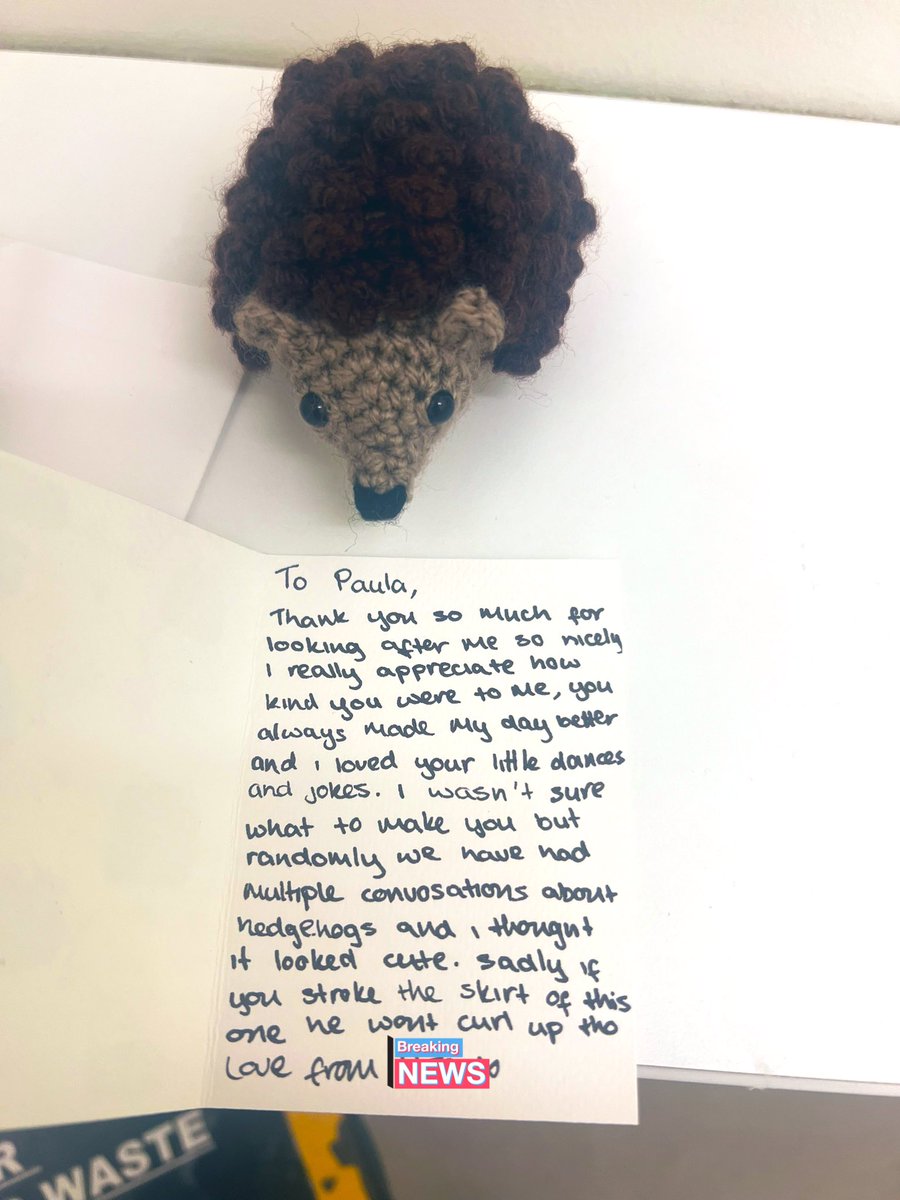 To Paula,
Thank you so much for
looking after me so nicely
I really appreciate how
kind you were to me, you
always made my day better
and i loved your little dances
and jokes. I wasn't sure
what to make you but
randomly we have had
multiple convosations about
hedgehogs and i thought
it looked cute. Sadly if
you stroke the skirt of this
one he wont curl up tho
Love from
Breaking
NEWS
R
WASTE